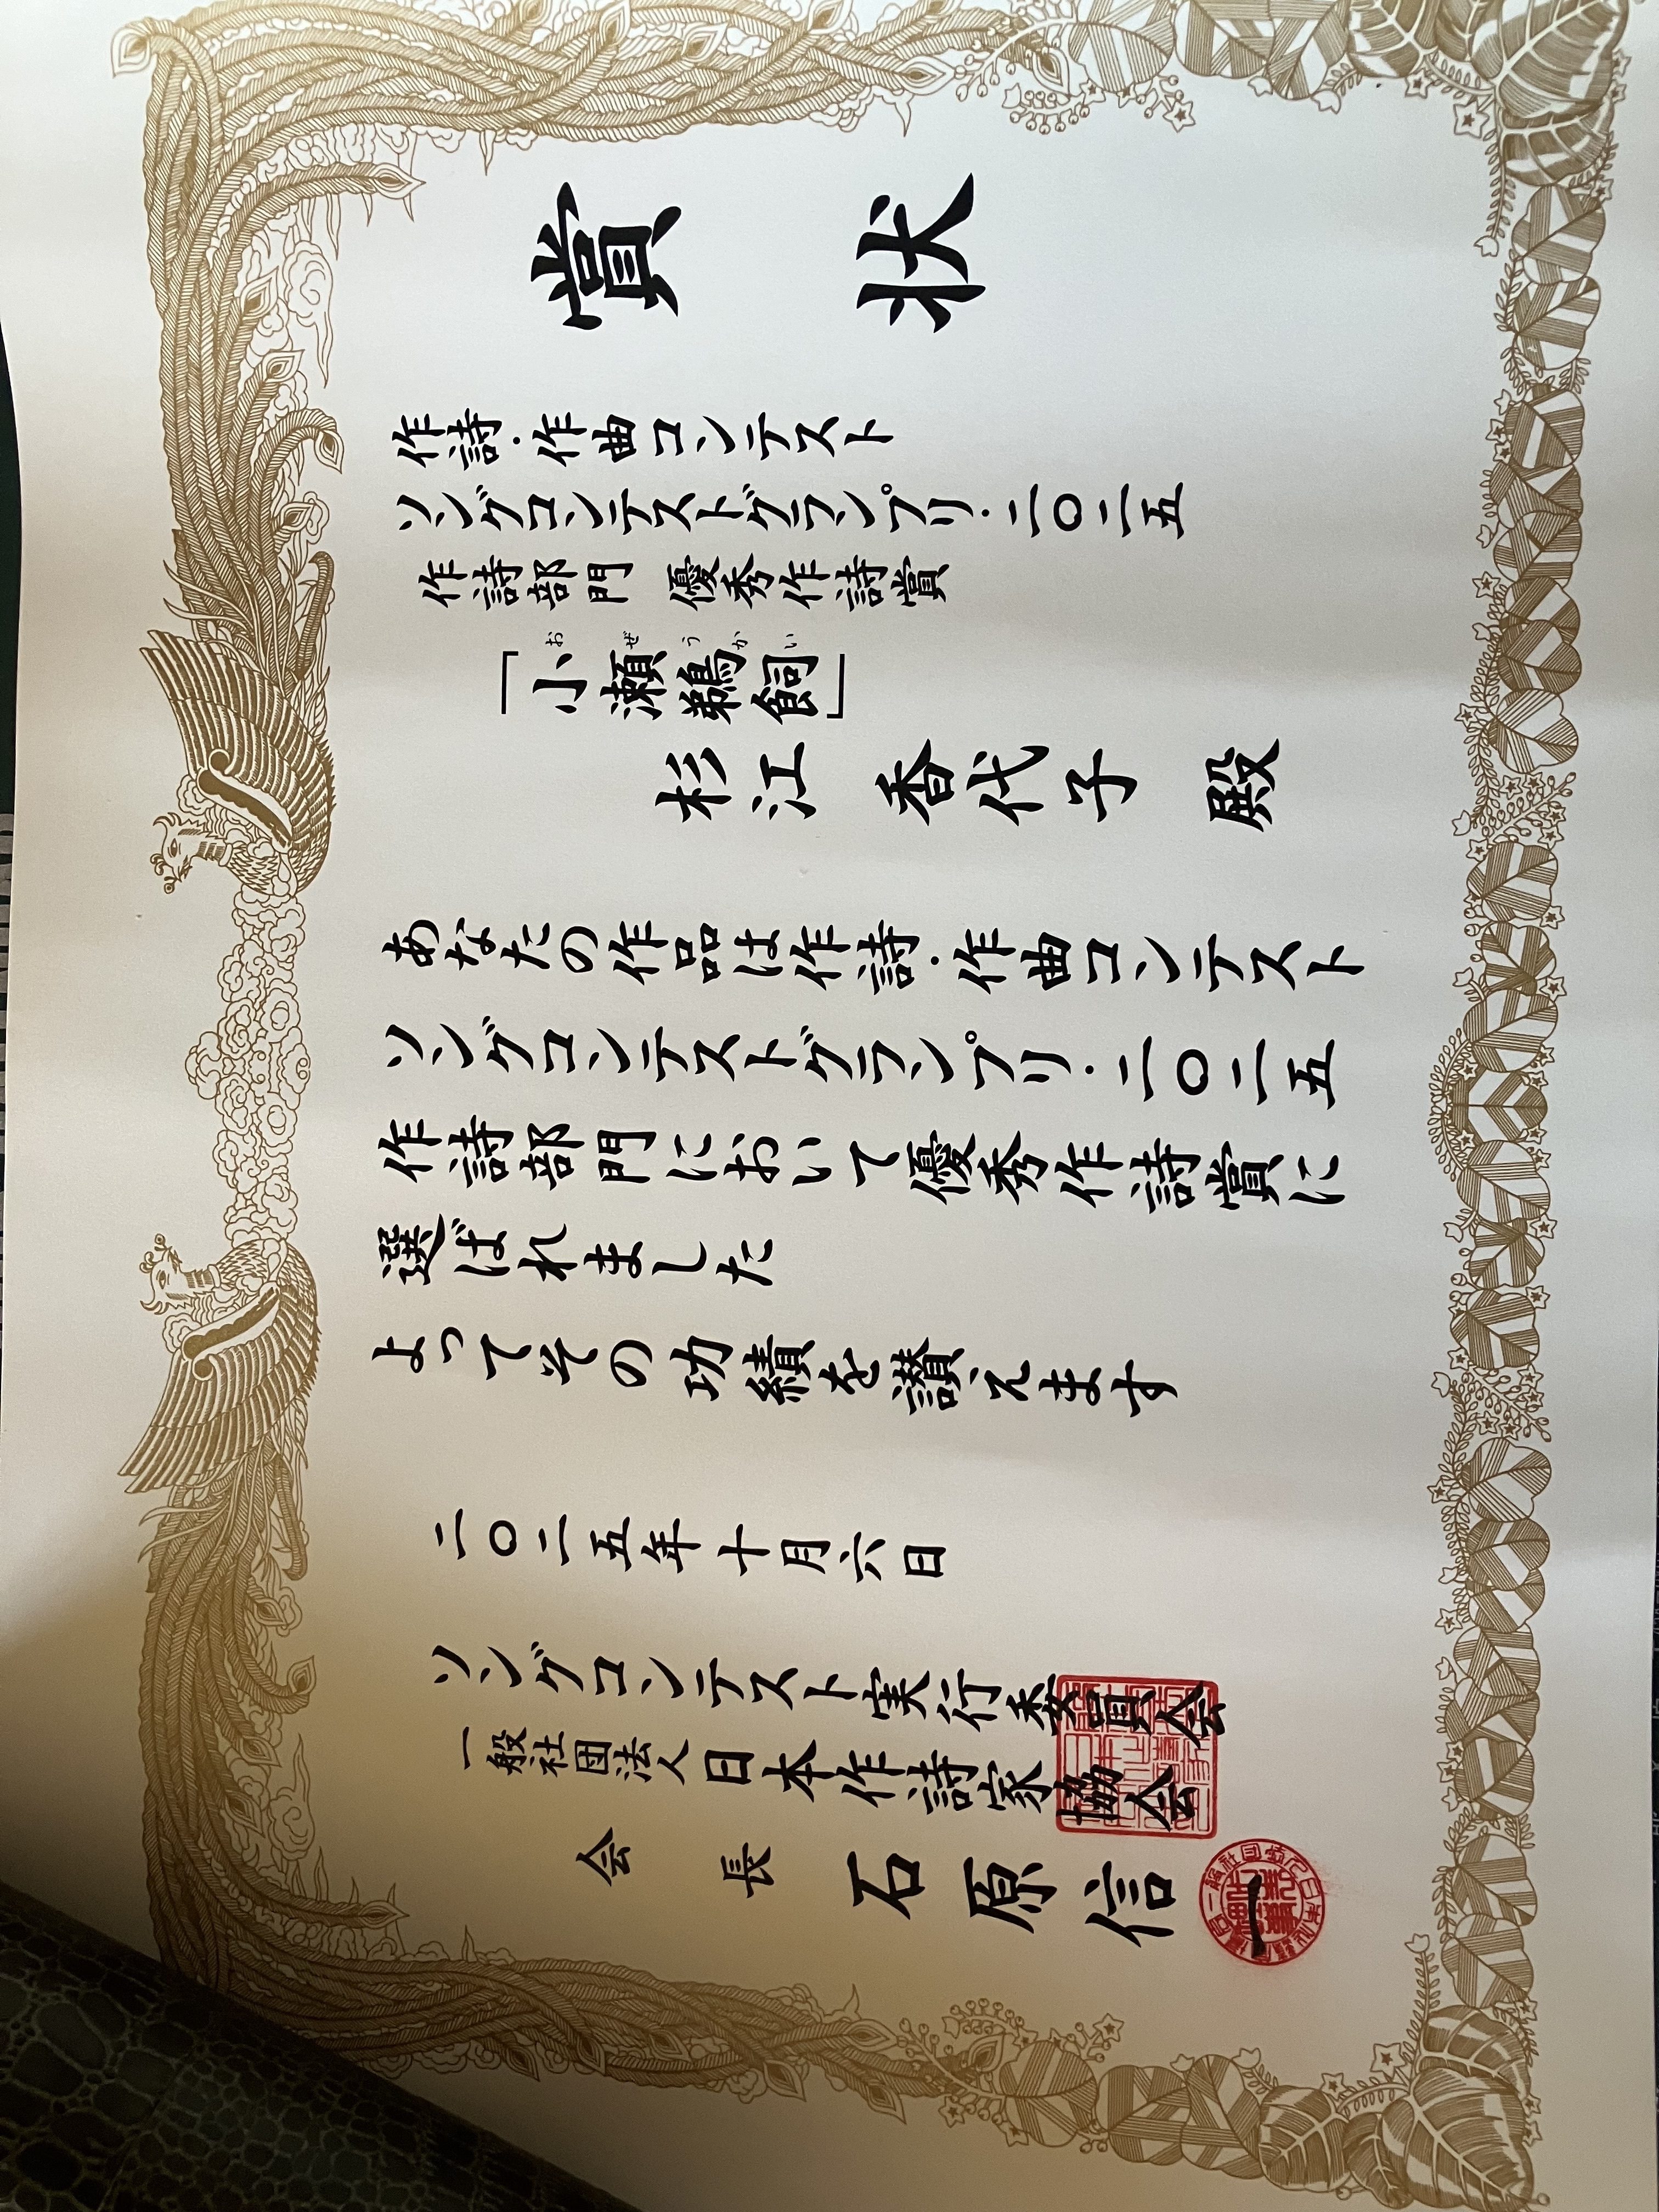 賞状
作詩・作曲コンテスト
ソングコンテストグランプリ・二〇二五
作詩部門 優秀作詩賞
おぜうかい
「小瀬鵜飼」
杉江 香代子 殿
あなたの作品は作詩・作曲コンテスト
ソングコンテストグランプリ・二〇二五
作詩部門において優秀作詩賞に
選ばれました
よってその功績を讃えます
二〇二五年十月六日
ソングコンテスト実行委員会
一般社団法人日本作詩家協会
会長 石原信一